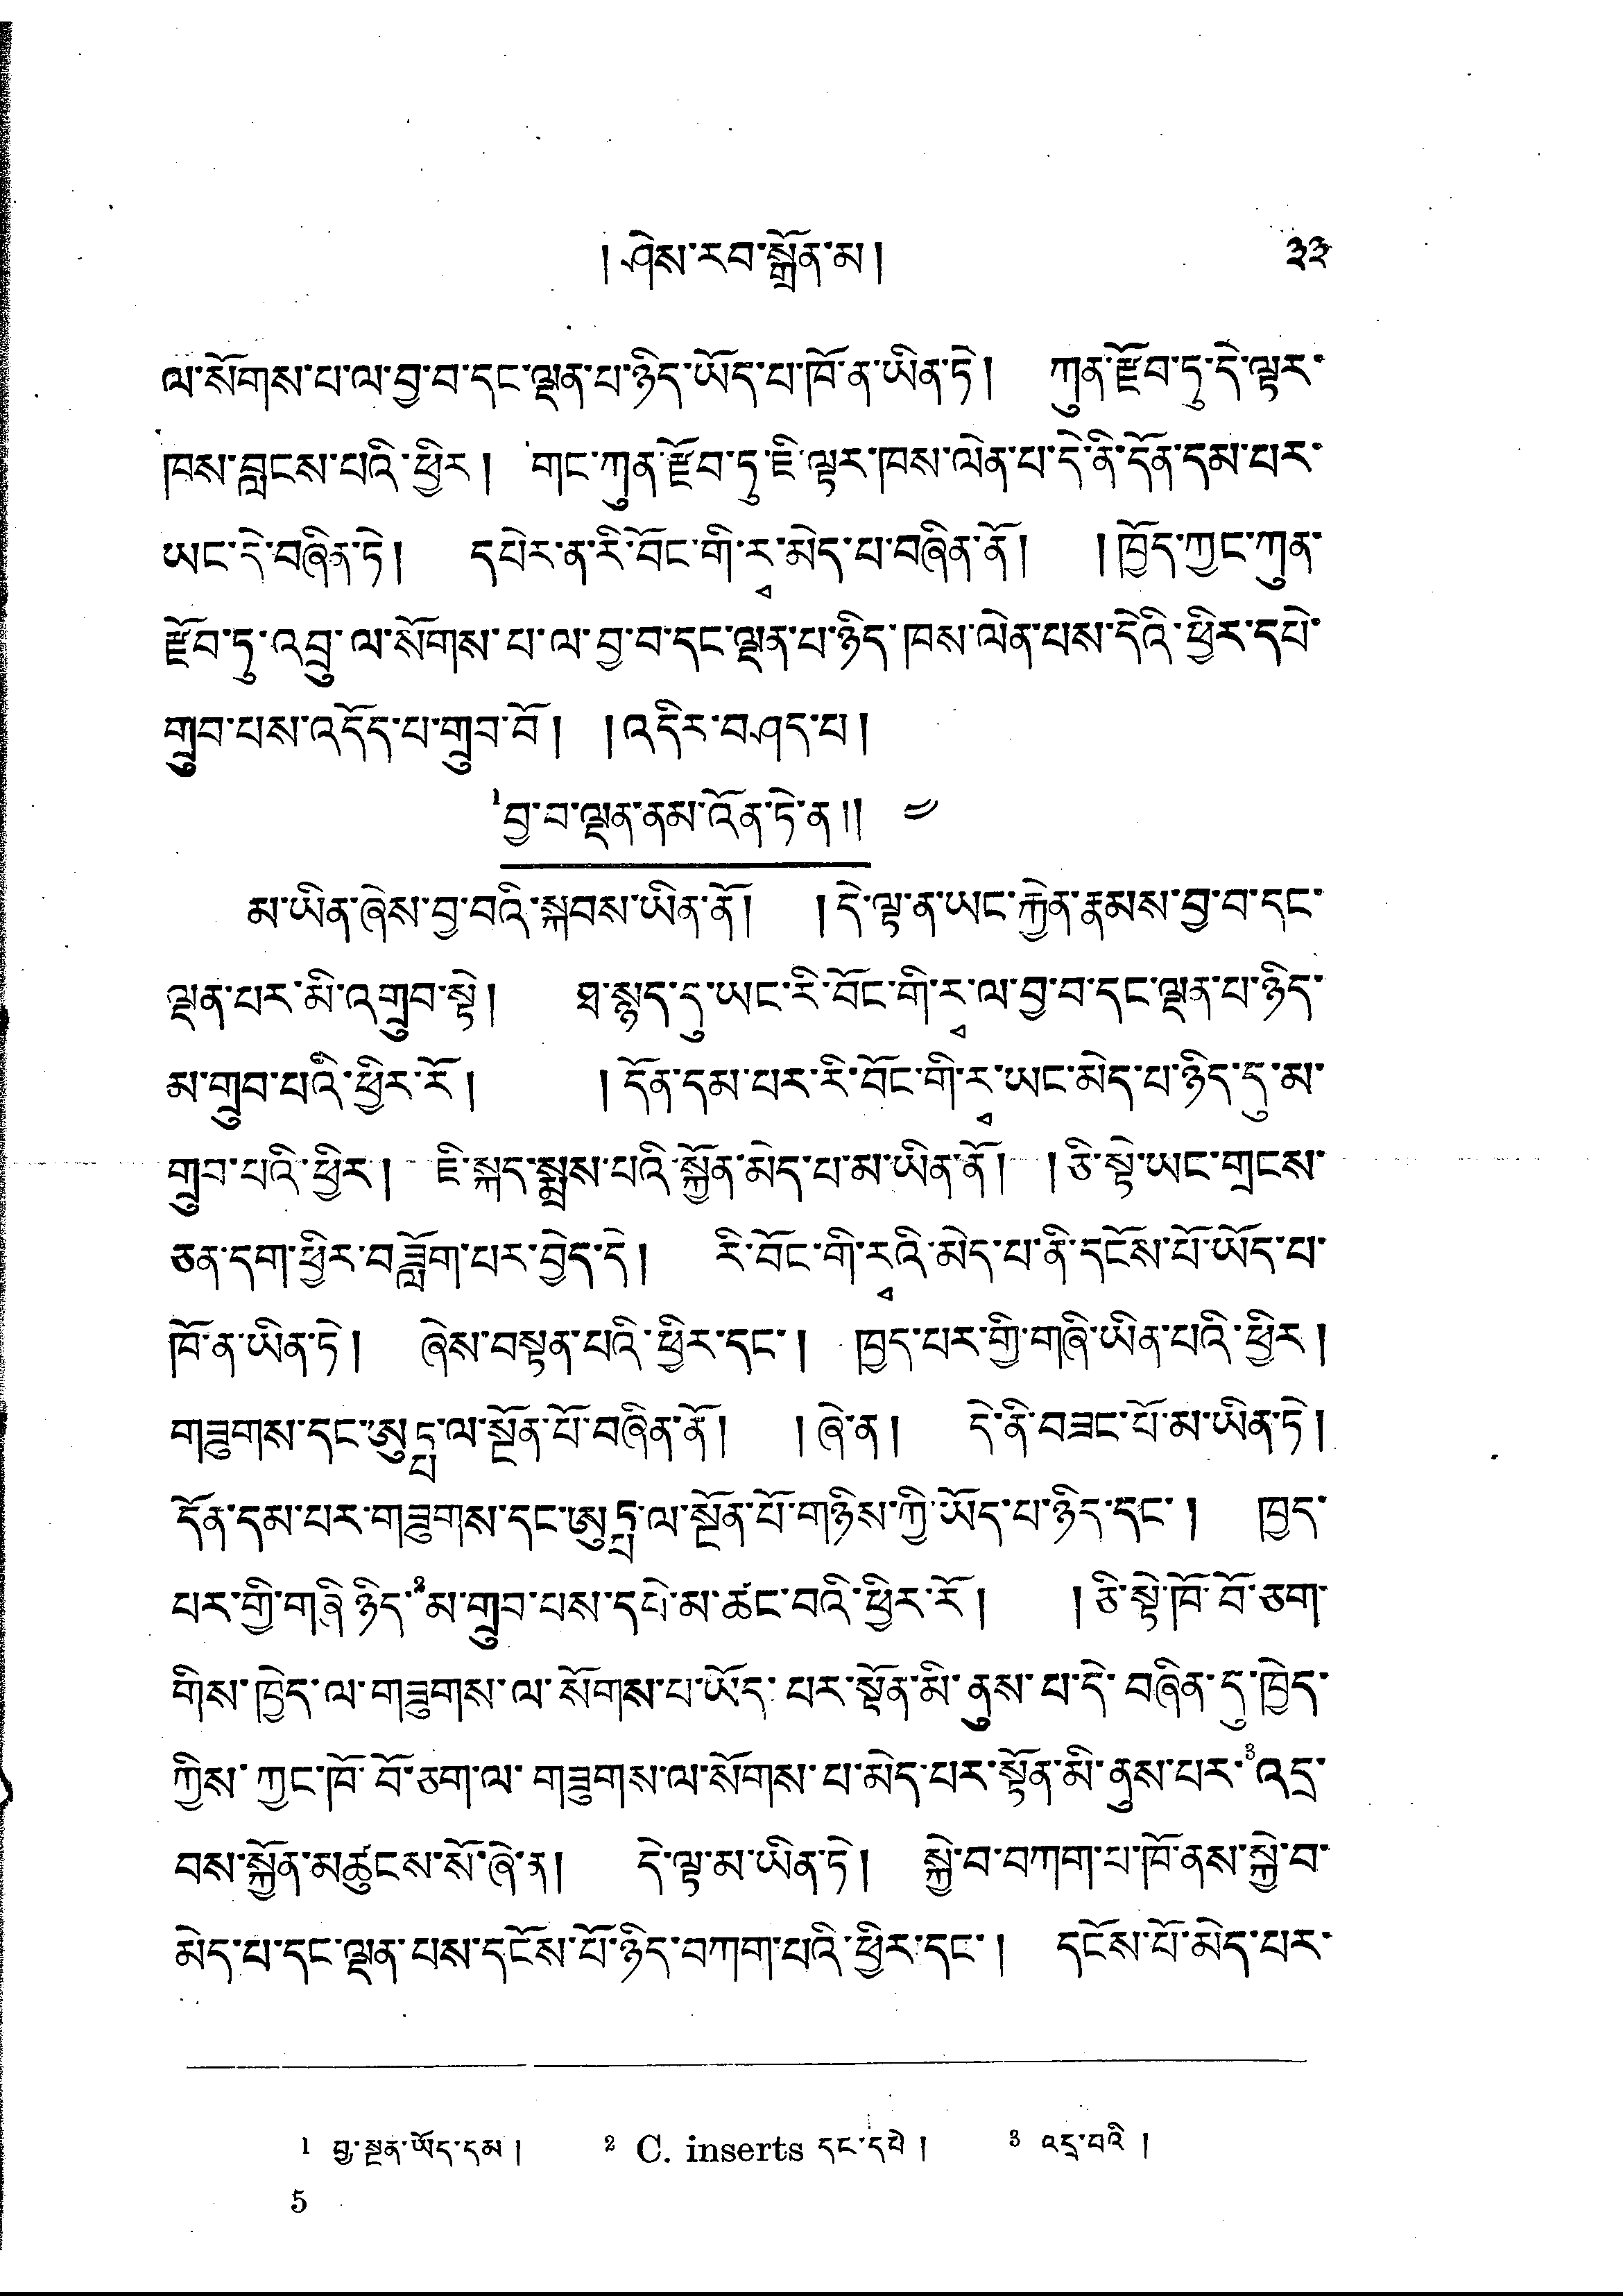 ། ཤེས་རབ་སྒྲོན་མ །
༣༣
ལ་སོགས་པ་ལ་བྱ་བ་དང་ལྡན་པ་ཉིད་ཡོད་པ་ཁོ་ན་ཡིན་ཏེ། ཀུན་རྫོབ་ཏུ་དེ་ལྟར་
ཁས་བླངས་པའི་ཕྱིར། གང་ཀུན་རྫོབ་ཏུ་ཇི་ལྟར་ཁས་ལེན་པ་དེ་ནི་དོན་དམ་པར་
ཡང་དེ་བཞིན་ཏེ། དཔེར་ན་རི་བོང་གི་རྭ་མེད་པ་བཞིན་ནོ། །ཁྱོད་ཀྱང་ཀུན་
རྫོབ་ཏུ་འབྲུ་ལ་སོགས་པ་ལ་བྱ་བ་དང་ལྡན་པ་ཉིད་ཁས་ལེན་པས་དེའི་ཕྱིར་དཔེ་
གྲུབ་པས་འདོད་པ་གྲུབ་བོ། །འདིར་བཤད་པ།
1བྱ་བ་ལྡན་ནམ་འོན་ཏེ་ན།། ༥
མ་ཡིན་ཞེས་བྱ་བའི་སྐབས་ཡིན་ནོ། །དེ་ལྟ་ན་ཡང་རྐྱེན་རྣམས་བྱ་བ་དང་
ལྡན་པར་མི་འགྲུབ་སྟེ། ཐ་སྙད་དུ་ཡང་རི་བོང་གི་རྭ་ལ་བྱ་བ་དང་ལྡན་པ་ཉིད་
མ་གྲུབ་པའི་ཕྱིར་རོ། །དོན་དམ་པར་རི་བོང་གི་རྭ་ཡང་མེད་པ་ཉིད་དུ་མ་
གྲུབ་པའི་ཕྱིར། ཇི་སྐད་སྨྲས་པའི་སྐྱོན་མེད་པ་མ་ཡིན་ནོ། །ཅི་སྟེ་ཡང་གྲངས་
ཅན་དག་ཕྱིར་བཟློག་པར་བྱེད་དེ། རི་བོང་གི་རྭའི་མེད་པ་ནི་དངོས་པོ་ཡོད་པ་
ཁོ་ན་ཡིན་ཏེ། ཞེས་བསྟན་པའི་ཕྱིར་དང་། ཁྱད་པར་གྱི་གཞི་ཡིན་པའི་ཕྱིར།
གཟུགས་དང་ཨུཏྤལ་སྔོན་པོ་བཞིན་ནོ། །ཞེ་ན། དེ་ནི་བཟང་པོ་མ་ཡིན་ཏེ།
དོན་དམ་པར་གཟུགས་དང་ཨུཏྤལ་སྔོན་པོ་གཉིས་ཀྱི་ཡོད་པ་ཉིད་དང་། ཁྱད་
པར་གྱི་གཞི་ཉིད་2མ་གྲུབ་པས་དཔེ་མ་ཚང་བའི་ཕྱིར་རོ། །ཅི་སྟེ་ཁོ་བོ་ཅག་
གིས་ཁྱེད་ལ་གཟུགས་ལ་སོགས་པ་ཡོད་པར་སྟོན་མི་ནུས་པ་དེ་བཞིན་དུ་ཁྱེད་
ཀྱིས་ཀྱང་ཁོ་བོ་ཅག་ལ་གཟུགས་ལ་སོགས་པ་མེད་པར་སྟོན་མི་ནུས་པར་3འདྲ་
བས་སྐྱོན་མཚུངས་སོ་ཞེ་ན། དེ་ལྟ་མ་ཡིན་ཏེ། སྐྱེ་བ་བཀག་པ་ཁོ་ནས་སྐྱེ་བ་
མེད་པ་དང་ལྡན་པས་དངོས་པོ་ཉིད་བཀག་པའི་ཕྱིར་དང་། དངོས་པོ་མེད་པར་
1 བྱ་ལྡན་ཡོད་དམ། 2 C. inserts དང་དཔེ། 3 འདྲ་བའི །
5